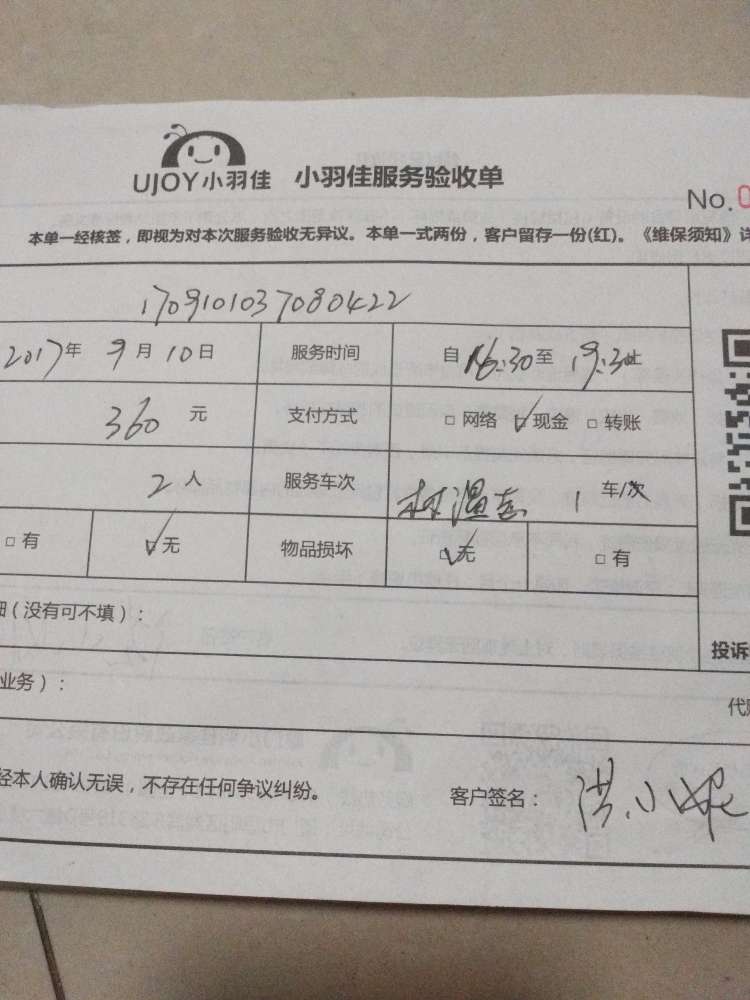 UJOY小羽佳 小羽佳服务验收单
No.0
本单一经核签，即视为对本次服务验收无异议。本单一式两份，客户留存一份(红)。《维保须知》详
1709101037080422
2017年 9月10日 服务时间 自 16:30至 19:30止
360 元 支付方式 □ 网络 ☑ 现金 □ 转账
2 人 服务车次 1 车/次
□ 有 ☑ 无 物品损坏 ☑ 无 □ 有
细（没有可不填）：
投诉
业务）：
代
经本人确认无误，不存在任何争议纠纷。 客户签名： 洪小妮